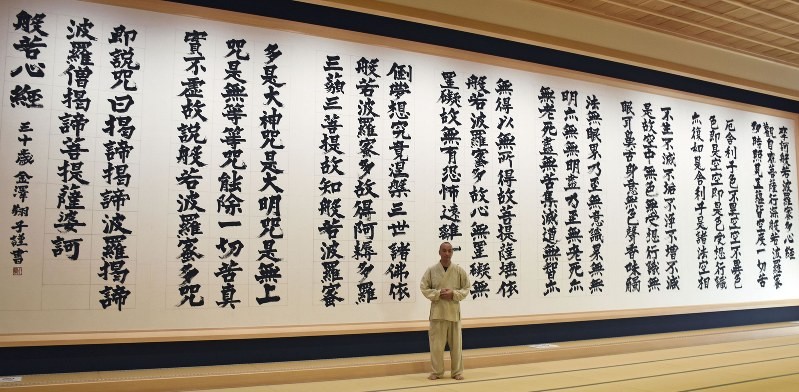 摩訶般若波羅蜜多心經
觀自在菩薩行深般若波羅蜜
多時照見五蘊皆空度一切苦
厄舎利子色不異空空不異色
色即是空空即是色受想行識
亦復如是舎利子是諸法空相
不生不滅不垢不淨不增不減
是故空中無色無受想行識無
眼耳鼻舌身意無色聲香味觸
法無眼界乃至無意識界無無
明亦無無明盡乃至無老死亦
無老死盡無苦集滅道無智亦
無得以無所得故菩提薩埵依
般若波羅蜜多故心無罣礙無
罣礙故無有恐怖遠離一
倒夢想究竟涅槃三世諸佛依
般若波羅蜜多故得阿耨多羅
三藐三菩提故知般若波羅蜜
多是大神呪是大明呪是無上
呪是無等等呪能除一切苦真
實不虚故説般若波羅蜜多呪
即説呪曰揭諦揭諦波羅揭諦
波羅僧揭諦菩提薩婆訶
般若心經
三十歳 金澤翔子謹書